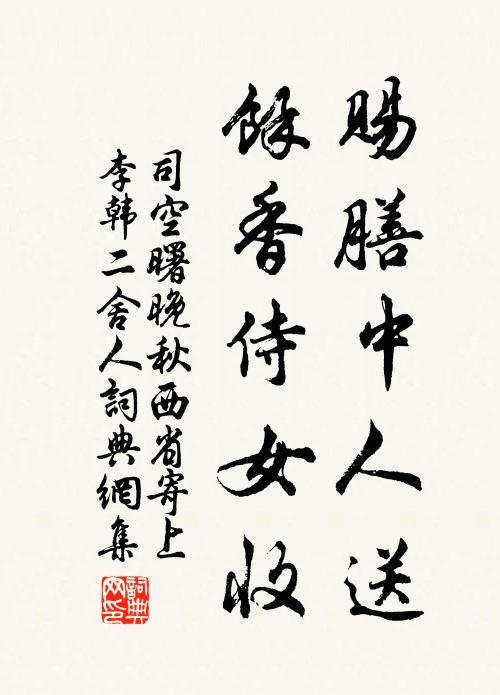 賜膳中人送
餘香侍女收
司空曙晚秋西省寄上
李韓二舍人詞典網集
詞典
网印